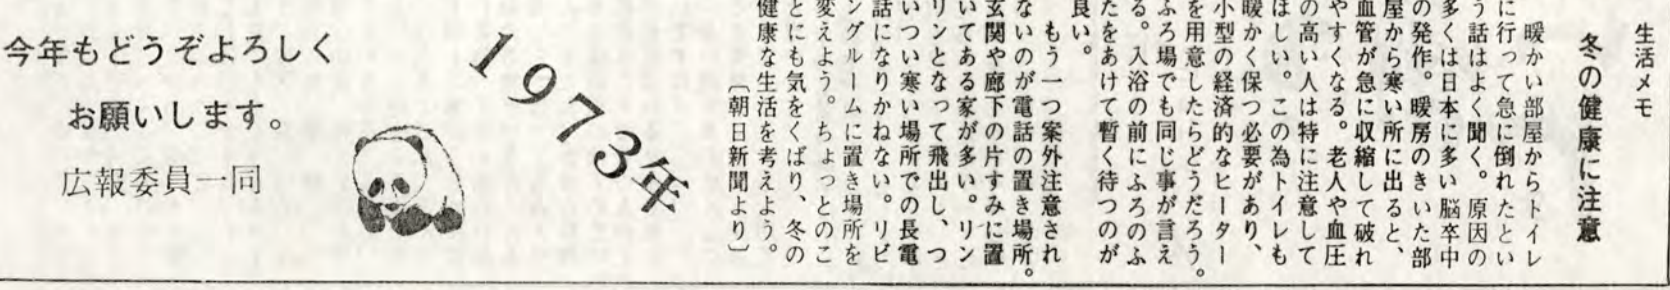 生活メモ
冬の健康に注意
暖かい部屋からトイレ
に行って急に倒れたとい
う話はよく聞く。原因の
多くは日本に多い脳卒中
の発作。暖房のきいた部
屋から寒い所に出ると、
血管が急に収縮して破れ
やすくなる。老人や血圧
の高い人は特に注意して
ほしい。この為トイレも
暖かく保つ必要があり、
小型の経済的なヒーター
を用意したらどうだろう。
ふろ場でも同じ事が言え
る。入浴の前にふろのふ
たをあけて暫く待つのが
良い。
もう一つ案外注意され
ないのが電話の置き場所。
玄関や廊下の片すみに置
いてある家が多い。リン
リンとなって飛出し、つ
いつい寒い場所での長電
話になりかねない。リビ
ングルームに置き場所を
変えよう。ちょっとのこ
とにも気をくばり、冬の
健康な生活を考えよう。
〔朝日新聞より〕
1973年
今年もどうぞよろしく
お願いします。
広報委員一同